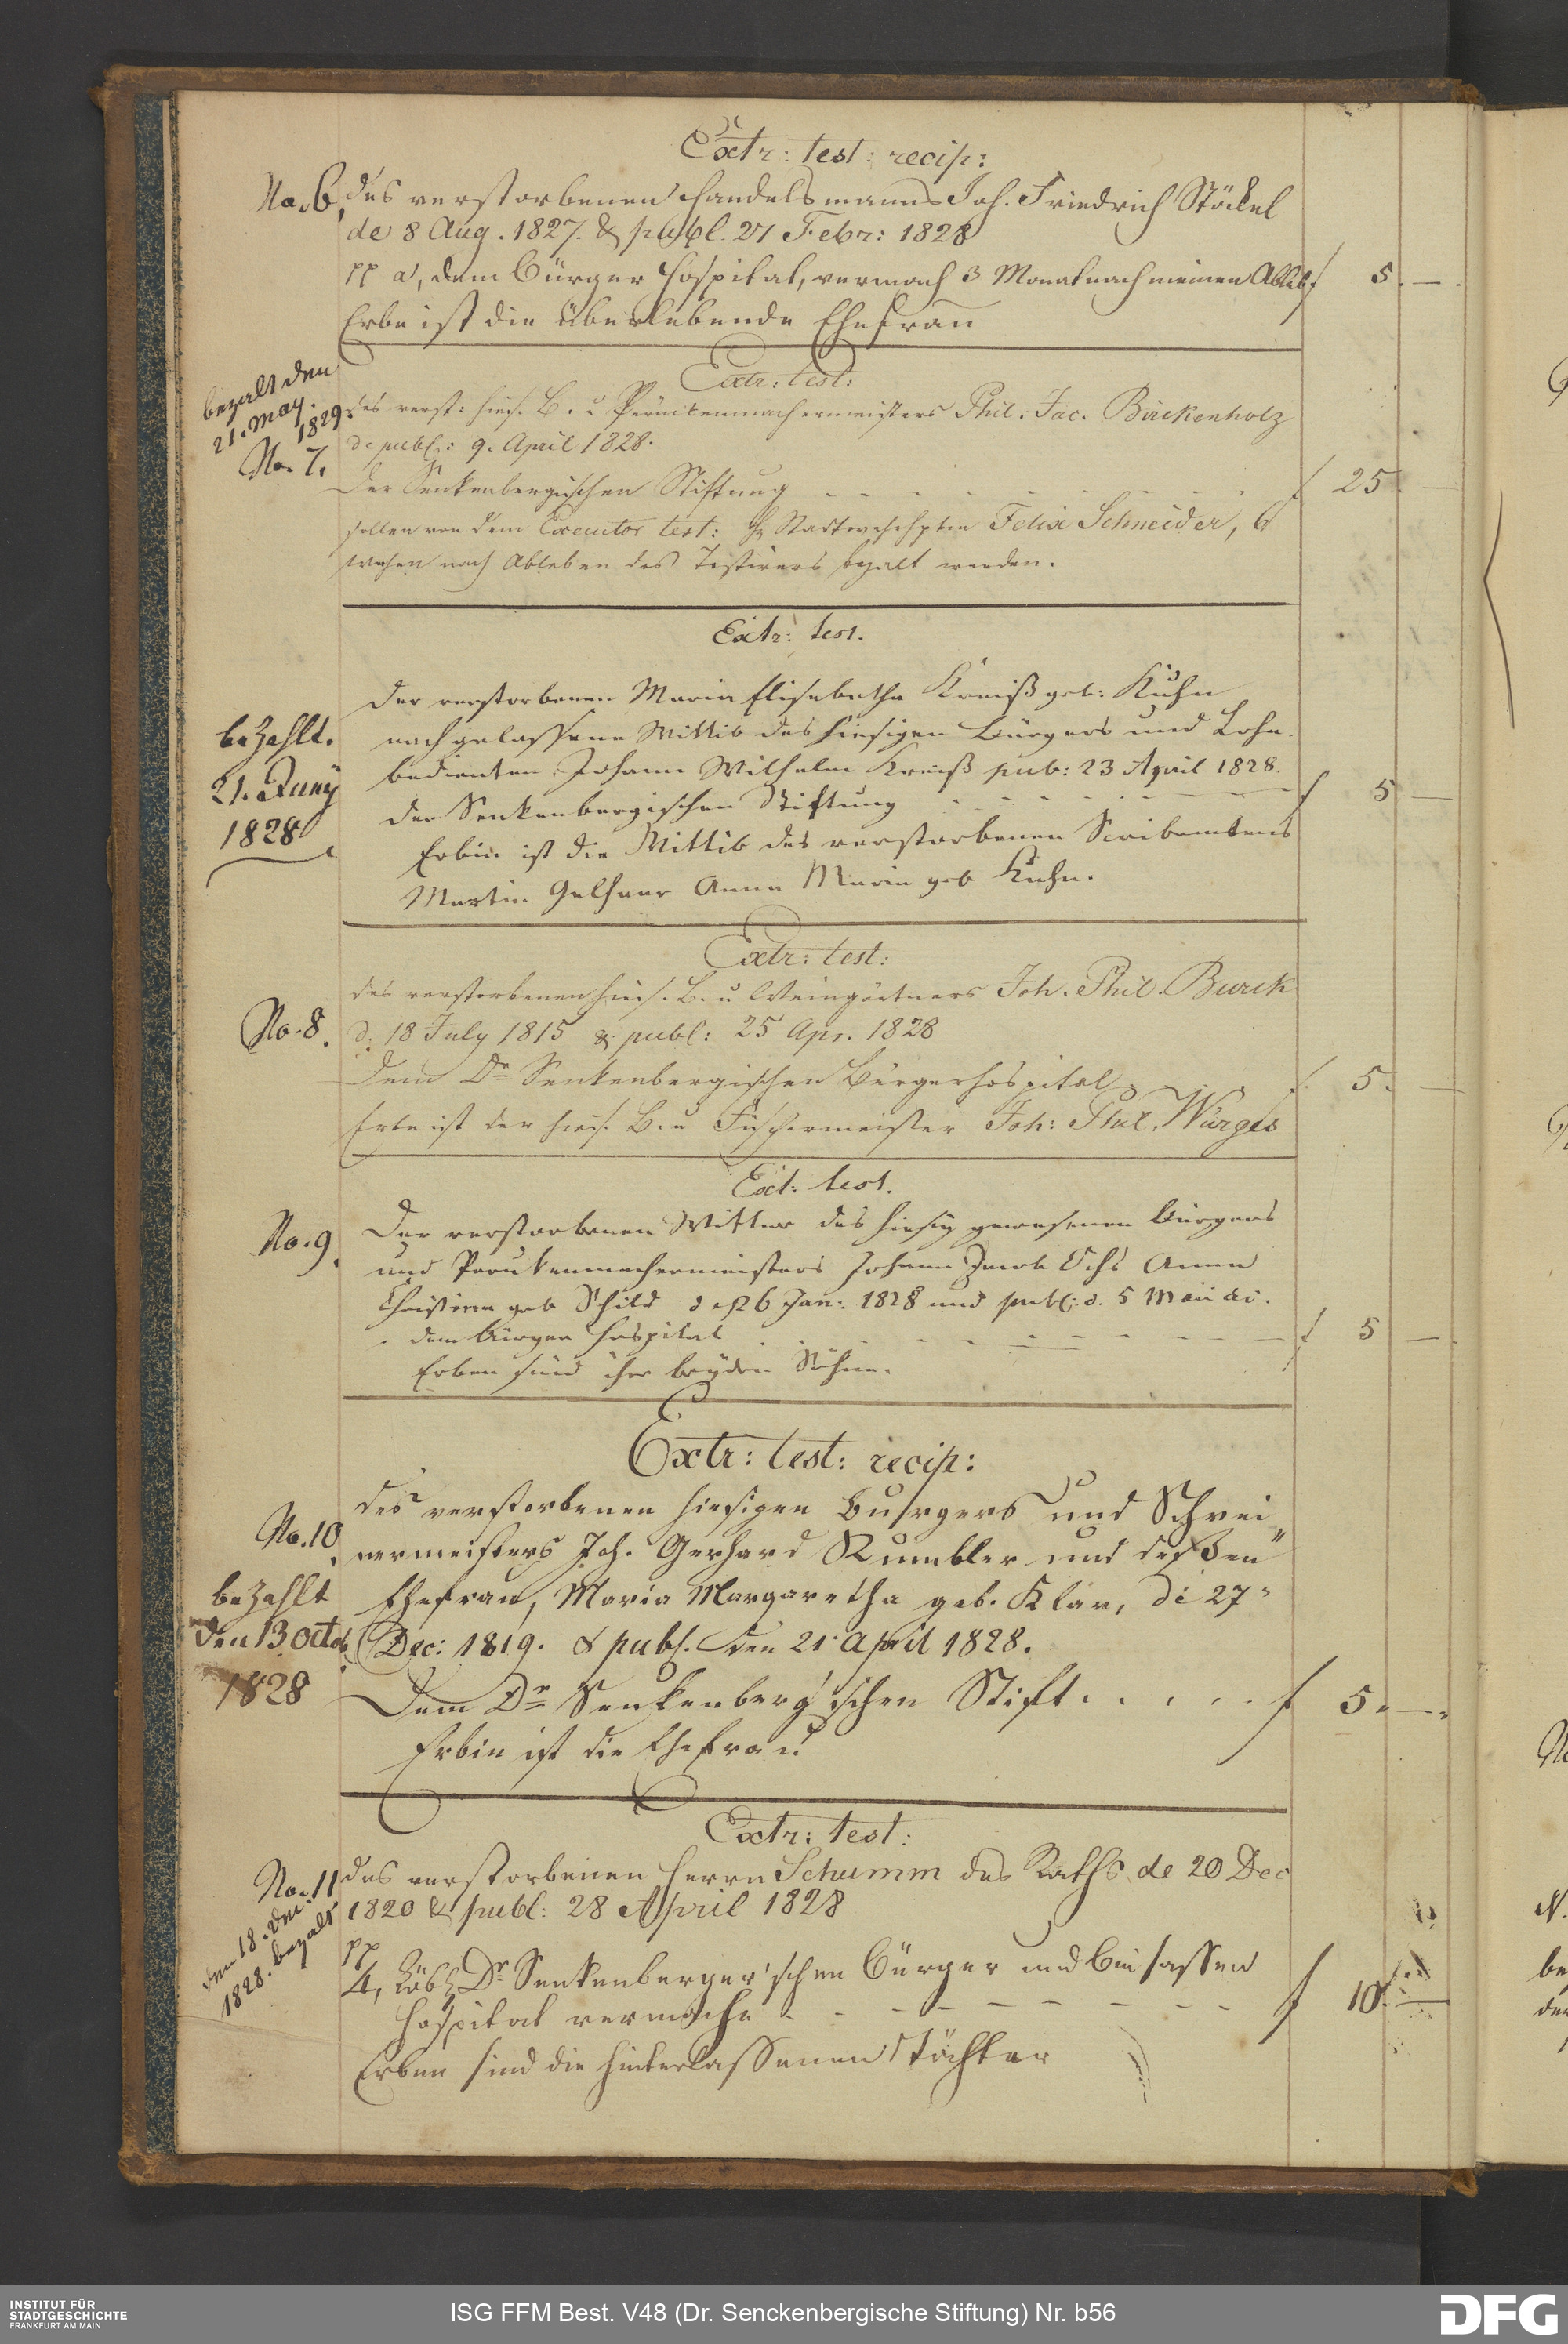 Extr: test: recip:
No. 6, des verstorbenen Handelsmanns Joh. Friedrich Stöckel
de 8 Aug. 1827. & publ. 27 Febr: 1828
pp a, dem Bürger Hospital, vermach 3 Monat nach meinen Ableb f 5. —.
Erbe ist die überlebende Ehefrau
Extr: test:
bezalt den
21. May.
1829.
No. 7.
des verst: hies. B. u Perückenmachermeisters Phil. Jac. Birckenholz
de publ: 9. April 1828.
der Senkenbergischen Stiftung f 25. —
sollen von dem Executor test: Felix Schneider, 6
wochen nach Ableben des Testirers bezalt werden.
Extr: test.
bezahlt.
21. Juny
1828
der verstorbenen Maria Elisabetha Kreuß geb: Kuhn
nachgelassene Wittib des hiesigen Bürgers und Lohn
bedienten Johann Wilhelm Kreuß pub: 23 April 1828.
der Senkenbergischen Stiftung f 5 —
Erbin ist die Wittib des verstorbenen Scribenten
Martin Gelhaar Anna Maria geb Kuhn.
Extr: test:
No. 8. des verstorbenen hies. B. u Weingärtners Joh. Phil. Burck
d: 18 July 1815 & publ: 25 Apr. 1828
Dem Dr Senkenbergischen Bürgerhospital f. 5. —
Erbe ist der hies. B. u Fischermeister Joh: Phil. Würges
Ext: test.
No. 9. Der verstorbenen Wittwe des hiesig gewesenen Bürgers
und Peruckenmachermeisters Johann Jacob Ochs Anna
Christina geb Schild 26 Jan: 1828 und publ: d. 5 Maii
dem Bürger Hospital f 5 —
Erben sind ihre beyden Söhne.
Extr: test: recip:
No. 10.
bezahlt
den 13 Octob.
1828
des verstorbenen hiesigen Burgers und Schrei
nermeisters Joh. Gerhard Rumbler und deßen
Ehefrau, Maria Margaretha geb. Klar, de 27
Dec: 1819. & publ. den 21. April 1828.
Dem Dr Senkenberg'ischen Stift . . . . . f 5. —.
Erbin ist die Ehefrau
Extr: test:
No. 11
den 18. Dec.
1828. bezalt
des verstorbenen Herrn Schumm des Raths de 20 Dec
1820 & publ: 28 April 1828
pp
4, Löbl Dr Senkenberger'schen Bürger und Beisassen
Hospital vermache f 10. —
Erben sind die hinterlassenen Töchter
INSTITUT FÜR
STADTGESCHICHTE
FRANKFURT AM MAIN
ISG FFM Best. V48 (Dr. Senckenbergische Stiftung) Nr. b56
DFG